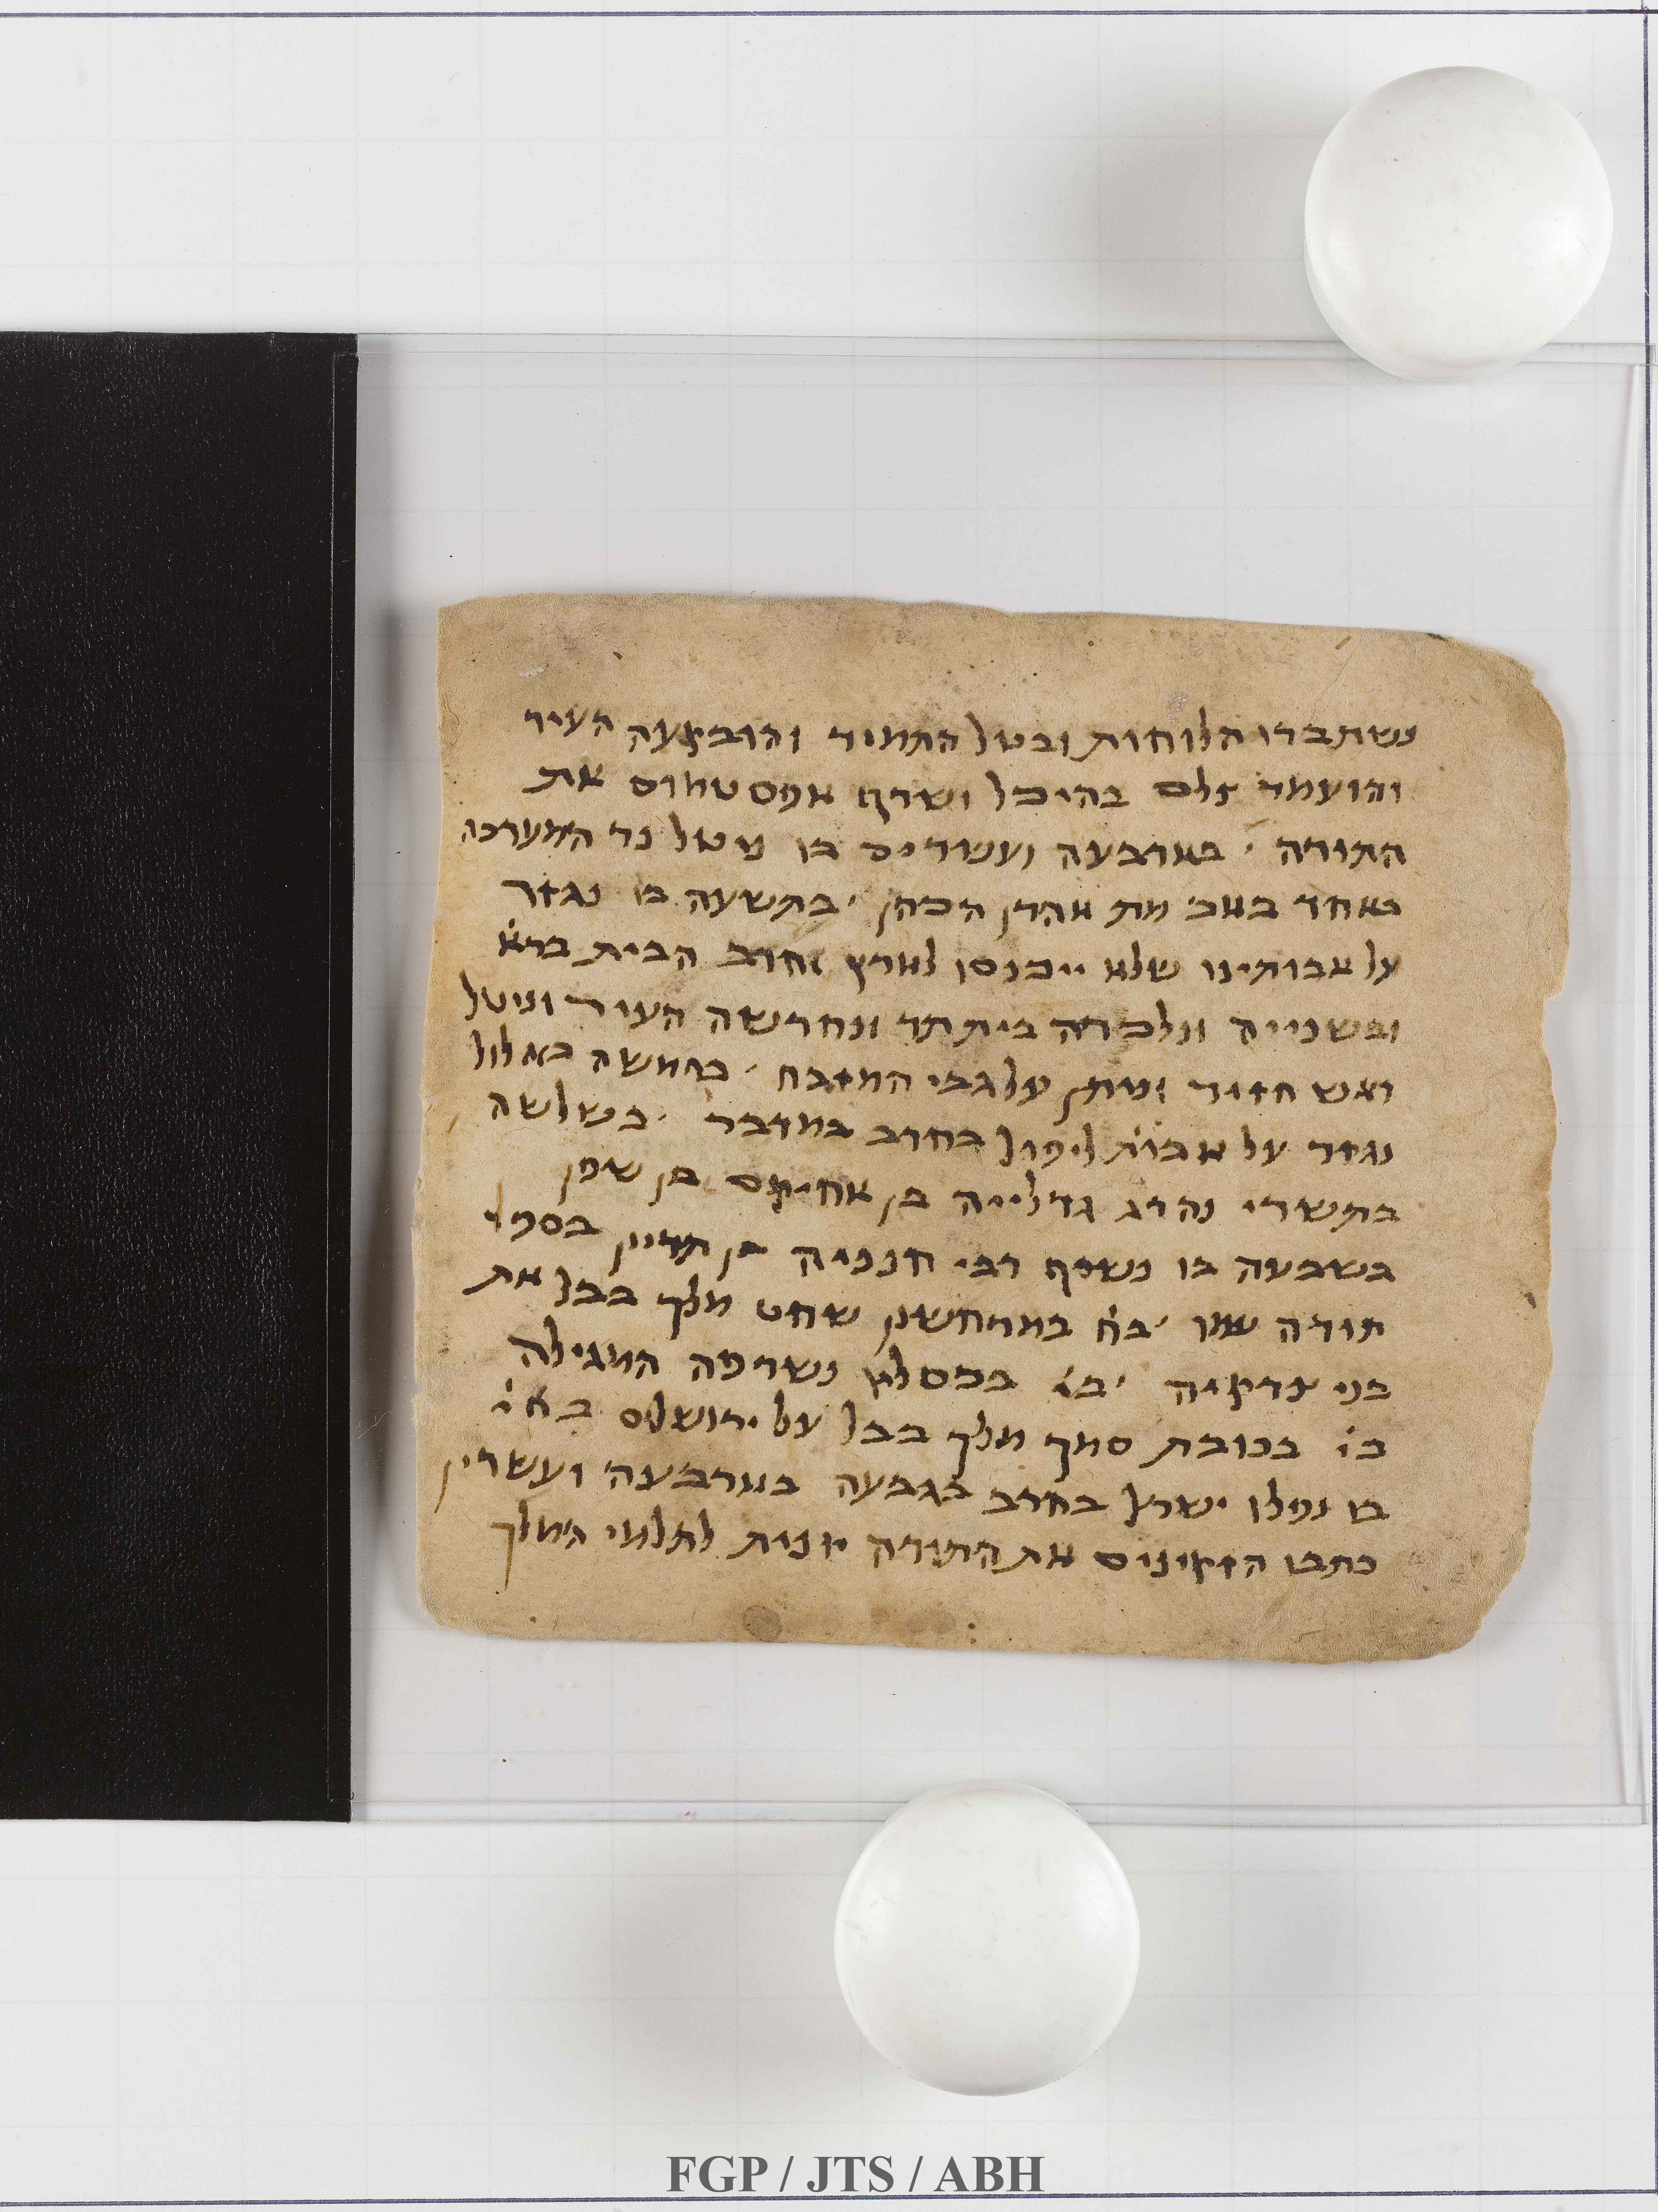 נשתברו הלוחות ובטל התמיד והובקעה העיר
והועמד צלם בהיכל ושרף אפסטמוס את
התורה ׳ בארבעה ועשרים בו ניטל נר המערכה
באחד באב מת אהרן הכהן ׳ בתשעה בו נגזר
על אבותינו שלא ייכנסו לארץ וחרב הבית ברא׳
ובשנייה ונלכדה ביתתר ונחרשה העיר וניטל
ראש חזיר וניתן על גבי המזבח ׳ בחמשה באלול
נגזר על אבות׳ ליפול בחרב במדבר ׳ בשלשה
בתשרי נהרג גדלייה בן אחיקם בן שפן
בשבעה בו נשרף רבי חנניה בן תרדיון בספר
תורה עמו ׳ בח׳ במרחשון שחט מלך בבל את
בני צדקיה ׳ בז׳ בכסלו נשרפה המגילה
בי׳ בטבת סמך מלך בבל על ירושלם
בו נפלו ישראל בחרב בגבעה בארבעה ועשרין
כתבו הזקינים את התורה יונית לתלמי המלך
FGP / JTS / ABH